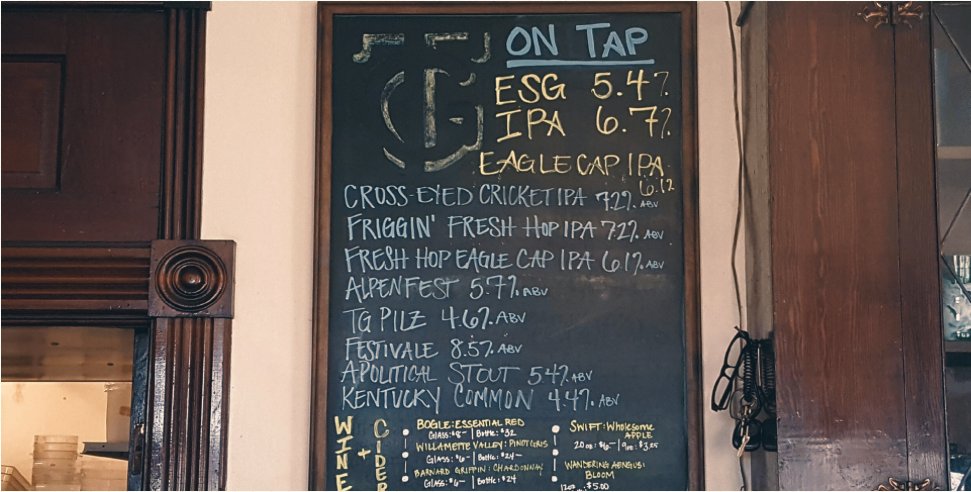 TG
ON TAP
ESG 5.4%
IPA 6.7%
EAGLE CAP IPA
6.1%
CROSS-EYED CRICKET IPA 7.2% ABV
FRIGGIN' FRESH HOP IPA 7.2% ABV
FRESH HOP EAGLE CAP IPA 6.1% ABV
ALPENFEST 5.7% ABV
TG PILZ 4.6% ABV
FESTIVALE 8.5% ABV
APOLITICAL STOUT 5.4% ABV
KENTUCKY COMMON 4.4% ABV
WINE + CIDER
BOGLE: ESSENTIAL RED
GLASS: $8— | Bottle: $32
WILLAMETTE VALLEY: PINOT GRIS
GLASS: $6— | Bottle: $24—
BARNARD GRIFFIN: CHARDONNAY
GLASS: $6— | Bottle: $24
SWIFT: Wholesome
APPLE
20oz: $6— | 9oz: $3.25
WANDERING AENGUS:
BLOOM
12oz : $5.00